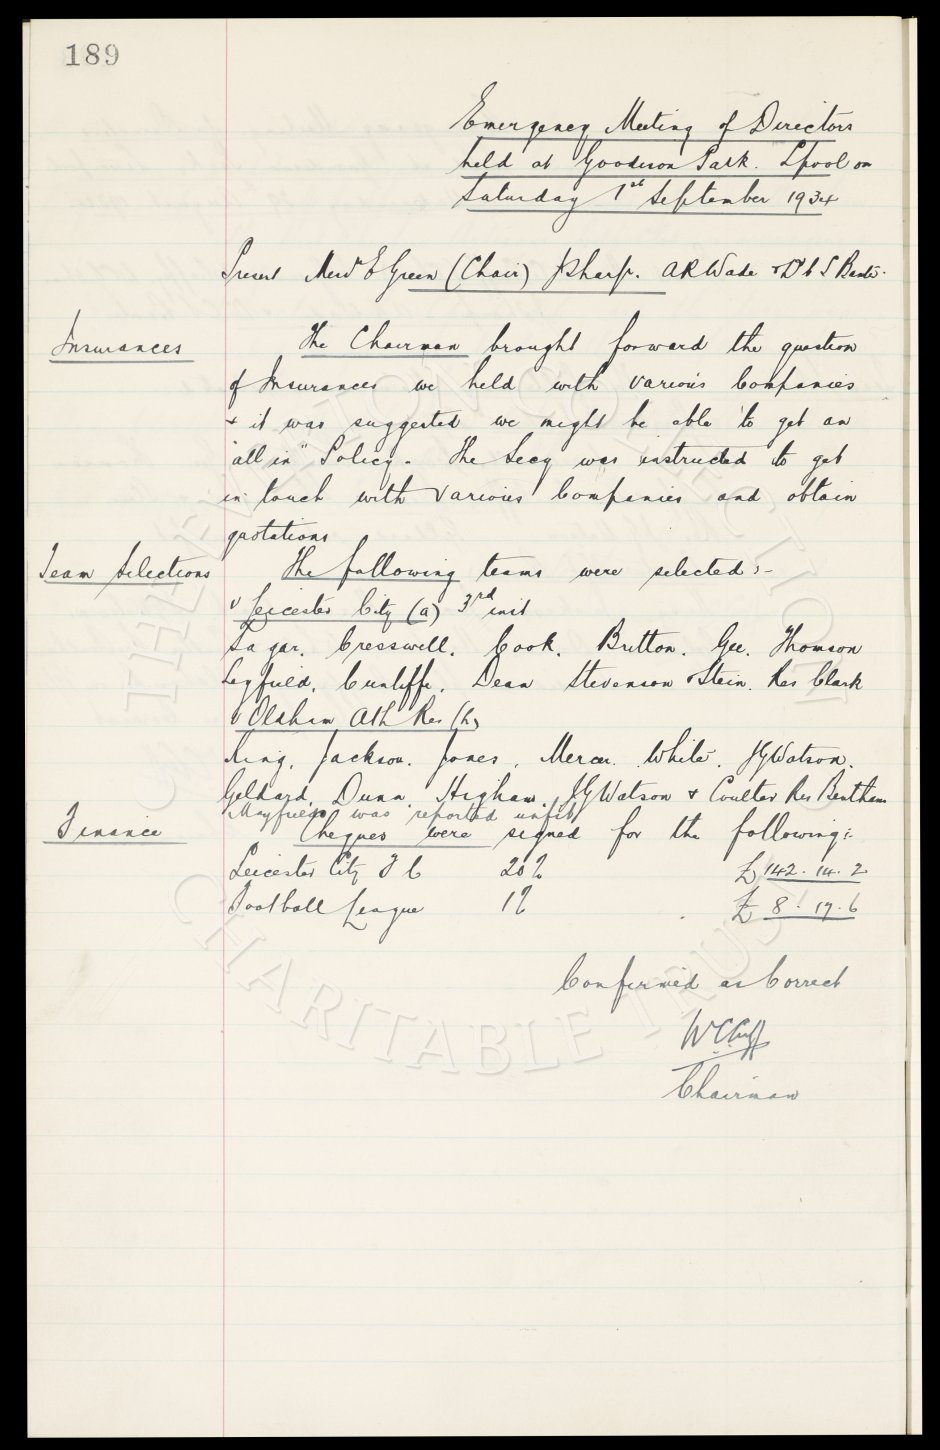 189
Emergency Meeting of Directors
held at Goodison Park. Lpool on
Saturday 1st September 1934
Present Messrs E Green (Chair) J Sharp. A R Wade & Dr C S Baxter.
Insurances
The Chairman brought forward the question
of Insurances we held with various Companies
& it was suggested we might be able to get an
"all in" Policy. The Secy was instructed to get
in touch with various Companies and obtain
quotations
Team Selections
The following teams were selected :-
v Leicester City (a) 3rd inst
Sagar. Cresswell. Cook. Britton. Gee. Thomson
Leyfield. Cunliffe. Dean Stevenson & Stein. Res Clark
v Oldham Ath Res (h)
King. Jackson. Jones. Mercer. White. J G Watson.
Geldard. Dunn. Higham. J G Watson & Coulter Res Bentham
Mayfield was reported unfit
Finance
Cheques were signed for the following :-
Leicester City F C 20% £142. 14. 2
Football League 1% £ 8. 17. 6
Confirmed as Correct
W C Cuff
Chairman
THE EVERTON COLLECTION
CHARITABLE TRUST